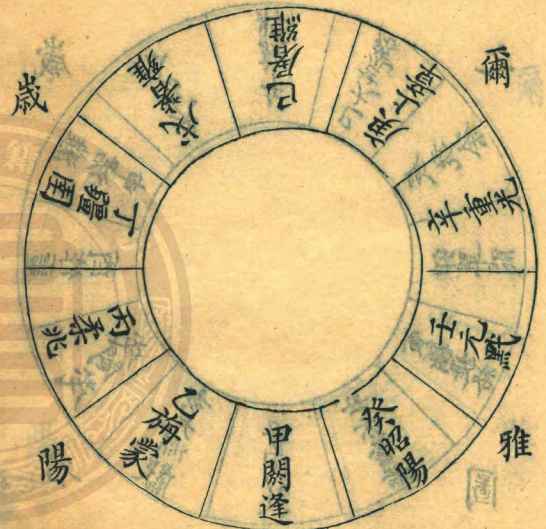 爾
雅
歲
陽
圖
甲閼逢
乙旃蒙
丙柔兆
丁疆圉
戊著雍
己屠維
庚上章
辛重光
壬元黓
癸昭陽